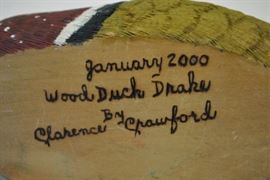 January 2000
Wood Duck Drake
By
Clarence Crawford